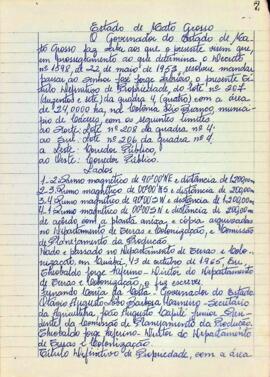 Estado de Mato Grosso
O Governador do Estado de Ma-
to Grosso faz saber aos que o presente virem que,
em prosseguimento ao que determina o Decreto
nº 1598, de 22 de maio de 1953, resolve mandar
passar ao Senhor José Jorge, o presente Tí-
tulo Definitivo de Propriedade, do lote nº 207
(duzentos e sete) da quadra 4 (quatro) com a área
de 24,0000 ha, na Colônia, municí-
pio de, com os seguintes limites
ao Norte: Lote nº 208 da quadra nº 4.
ao Sul: Lote nº 206 da quadra nº 4.
a Leste: Corredor Público.
ao Oeste: Corredor Público.
Lados
1-2 Rumo magnético de 90°00' e distância de 1.200,00m
2-3 Rumo magnético de 00°00' e distância de 200,00m
3-4 Rumo magnético de 90°00' e distância de 1.200,00m
4-1 Rumo magnético de 00°00' e distância de 200,00m
de acordo com as plantas anexas e cópia arquivadas
no Departamento de Terras e Colonização, e Comissão
de Planejamento da Produção.
Dado e passado no Departamento de Terras e Colo-
nização em Cuiabá, 13 de outubro de 1965, Eu,
Jorge, Diretor do Departamento
de Terras e Colonização, o fiz escrever.
Fernando Corrêa da Costa - Governador do Estado
Augusto Barbosa - Secretário
da Agricultura, João Augusto Capilé Júnior Presi-
dente da Comissão de Planejamento da Produção,
Jorge - Diretor do Departamento
de Terras e Colonização.
Título Definitivo de Propriedade, com a área